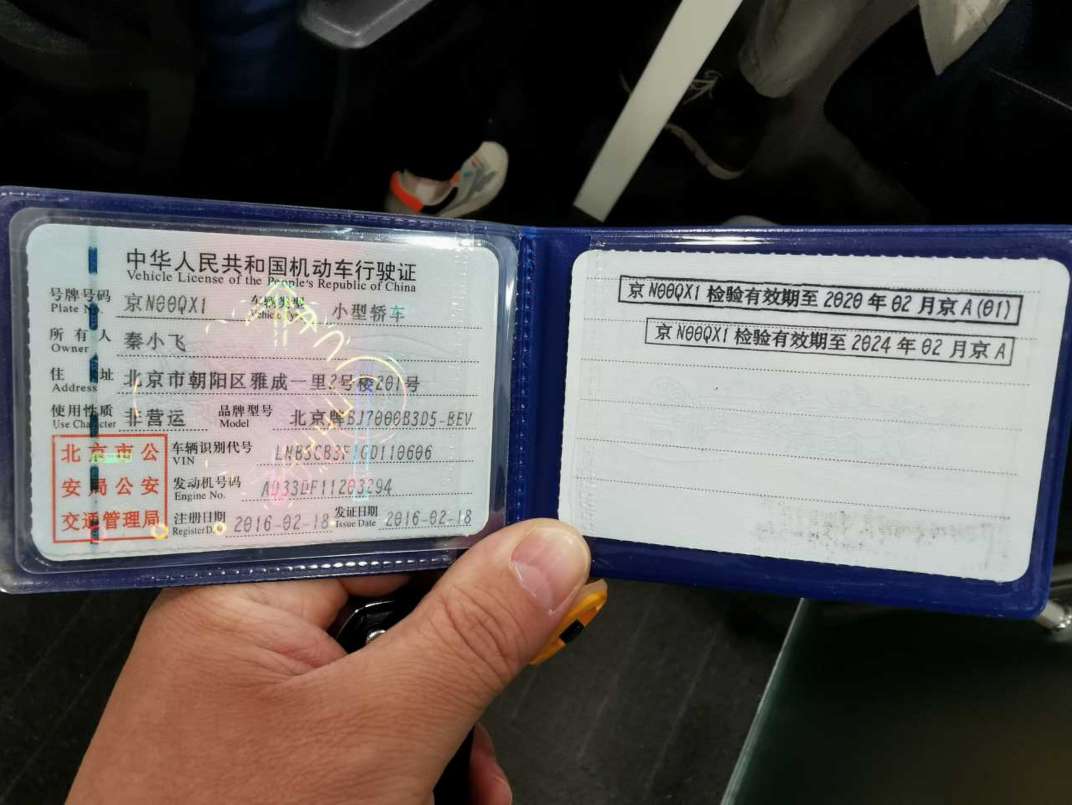 中华人民共和国机动车行驶证
Vehicle License of the People's Republic of China
号牌号码 京N00QX1 车辆类型 小型轿车
Plate No. Vehicle Type
所有人 秦小飞
Owner
住址 北京市朝阳区雅成一里2号楼201号
Address
使用性质 非营运 品牌型号 北京牌BJ7000B3D5-BEV
Use Character Model
北京市公
安局公安
交通管理局
车辆识别代号
VIN
发动机号码
Engine No.
注册日期 2016-02-18 发证日期 2016-02-18
Register Issue Date
京N00QX1 检验有效期至2020年02月京A(01)
京N00QX1 检验有效期至2024年02月京A